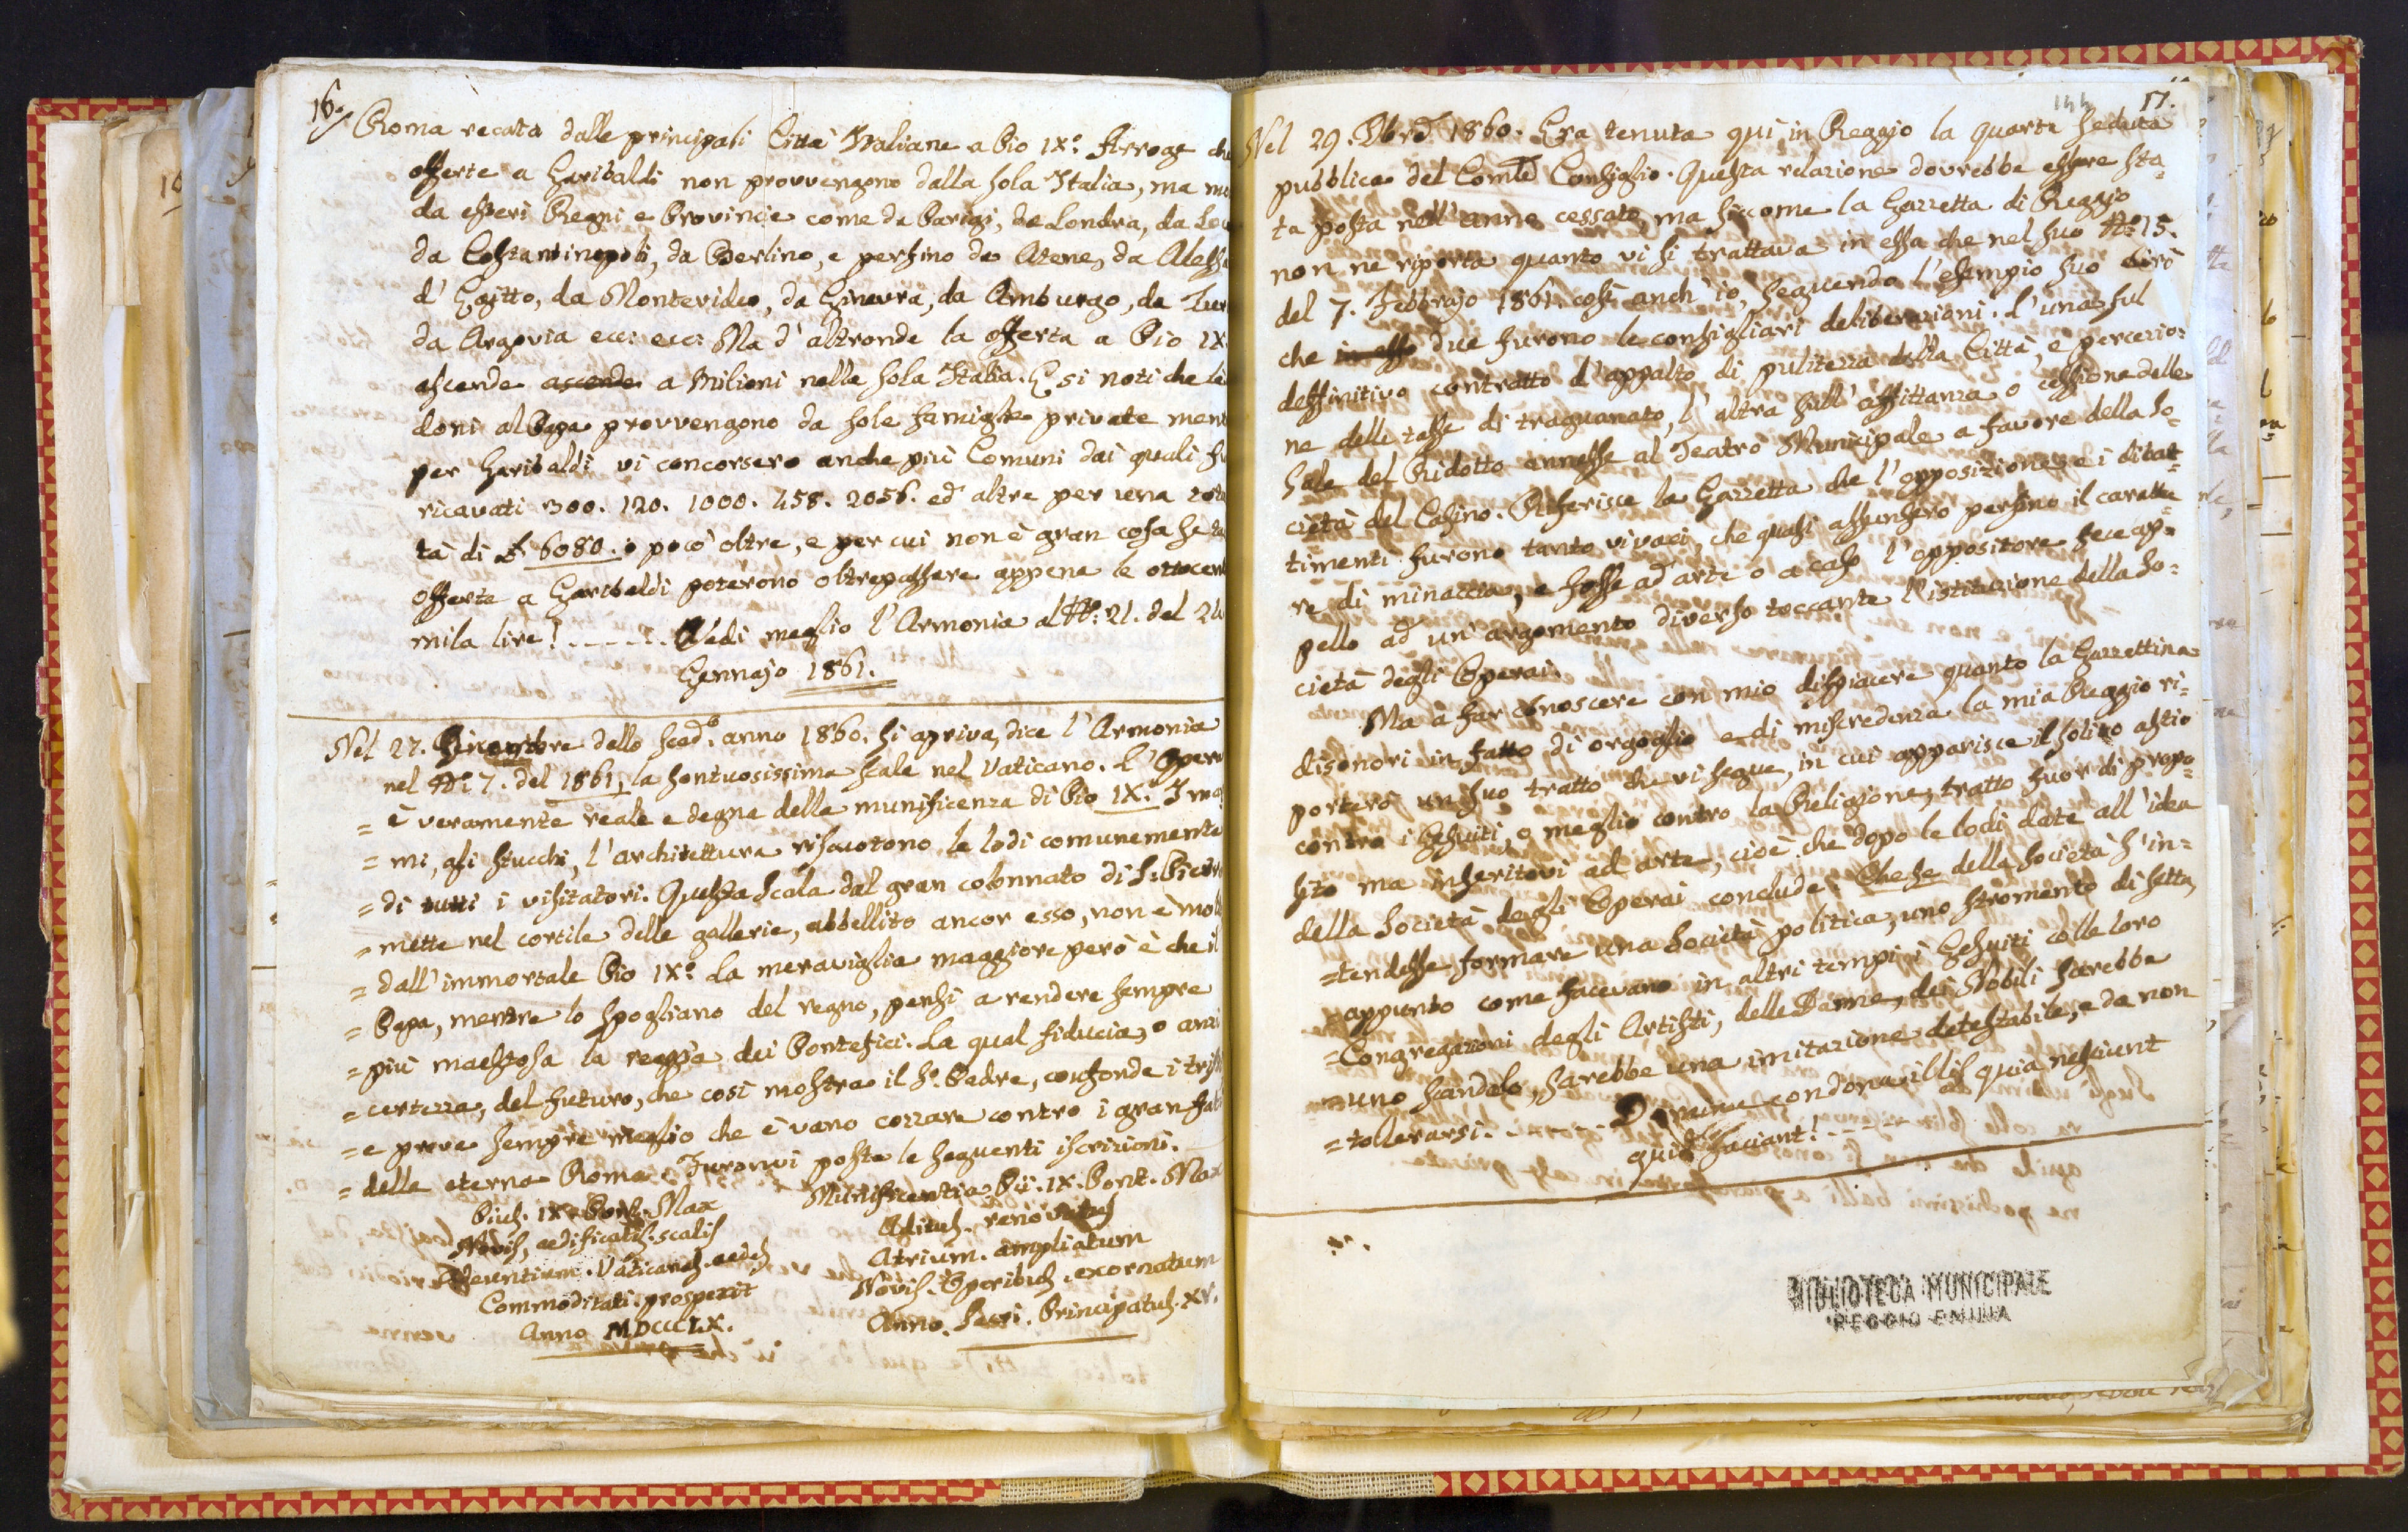 16.
Roma recata dalle principali Città Italiane a Pio IX.° Arroge che
offerte a Garibaldi non provvengono dalla sola Italia, ma
da esteri Regni e Provincie come da Parigi, da Londra, da
da Costantinopoli, da Berlino, e persino da Atene, da
d'Egitto, da Montevideo, da Ginevra, da Amburgo, da
da ecc: ecc: Ma d'altronde la offerta a Pio IX
ascende ascende a Milioni nella sola Italia. E si noti che
doni al Papa provvengono da sole famiglie private
per Garibaldi vi concorsero anche più Comuni dai quali
ricavati 300. 120. 1000. 458. 2056. ed altre per una
tà di 6080. o poco oltre, e per cui non è gran cosa se
offerte a Garibaldi poterono oltrepassare appena le
mila lire! . _ _ _ . . . Vedi meglio l'Armonia al N.° 21. del
Gennajo 1861.
Nel 27. dello scad.° anno 1860. si apriva, dice l'Armonia
nel N.° 7. del 1861, la sontuosissima scala nel Vaticano. L'
= è veramente reale e degna della munificenza di Pio IX. I
= mi, gli stucchi, l'architettura riscuotono le lodi comunemente
= di tutti i visitatori. Questa scala dal gran colonnato di S.
= mette nel cortile delle gallerie, abbellito ancor esso, non è
= dall'immortale Pio IX.° La meraviglia maggiore però è che il
= Papa, mentre lo spogliano del regno, pensi a rendere sempre
= più maestosa la reggia dei Pontefici. La qual fiducia, o anzi
= certezza, del futuro, che così mostra il S. Padre, confonde i
= e prova sempre meglio che è vano cozzare contro i gran
= della eterna Roma. Furonvi poste le seguenti iscrizioni.
Pius. IX. Pont. Max
Novis, aedificatis. scalis
Vaticanas. aedes
Commoditati. prospexit
Anno MDCCCLX.
Munificentia Pii. IX. Pont. Max
Aditus. renovatus
Atrium. ampliatum
Novis. Operibus. exornatum
Anno. Sacri. Principatus. XV.
144 17.
Nel 29. Xbre 1860. Era tenuta quì in Reggio la quarta seduta
pubblica del Com.le Consiglio. Questa relazione dovrebbe essere sta=
ta posta nell'anno cessato, ma siccome la Gazzetta di Reggio
non ne riporta quanto vi si trattava in essa che nel suo N.° 15.
del 7. Febbrajo 1861. così anch'io, seguendo l'esempio suo dirò
che in essa due furono le consigliari deliberazioni. l'una sul
deffinitivo contratto d'appalto di pulitezza della Città, e percezio=
ne delle tasse di traguanato, l'altra sull'affittanza o cessione delle
Sale del Ridotto annesse al Teatro Municipale a favore della So=
cietà del Casino. Riferisce la Gazzetta che l'opposizione e i dibat=
timenti furono tanto vivaci, che quasi assunsero persino il caratte=
re di minaccia, e fosse ad arte o a caso l'oppositore fece ap=
pello ad un'argomento diverso toccante l'istituzione della So=
cietà degli Operai.
Ma a far conoscere con mio dispiacere quanto la Gazzettina
disonori in fatto di orgoglio e di miscredenza la mia Reggio ri=
porterò un suo tratto che vi segue, in cui apparisce il solito astio
contro i Gesuiti, o meglio contro la Religione, tratto fuor di propo=
sito ma inseritovi ad arte, cioè che dopo le lodi date all'idea
della Società degli Operai conclude. Che se della Società s'in=
=tendesse formare una Società politica, uno stromento di setta,
=appunto come facevano in altri tempi i Gesuiti colle loro
=Congregazioni degli Artisti, delle Dame, dei Nobili sarebbe
=uno scandalo, sarebbe una imitazione detestabile, e da non
=tollerarsi. _ _ _ . Domine condona illis quia nesciunt
quid faciant!
BIBLIOTECA MUNICIPALE
REGGIO EMILIA